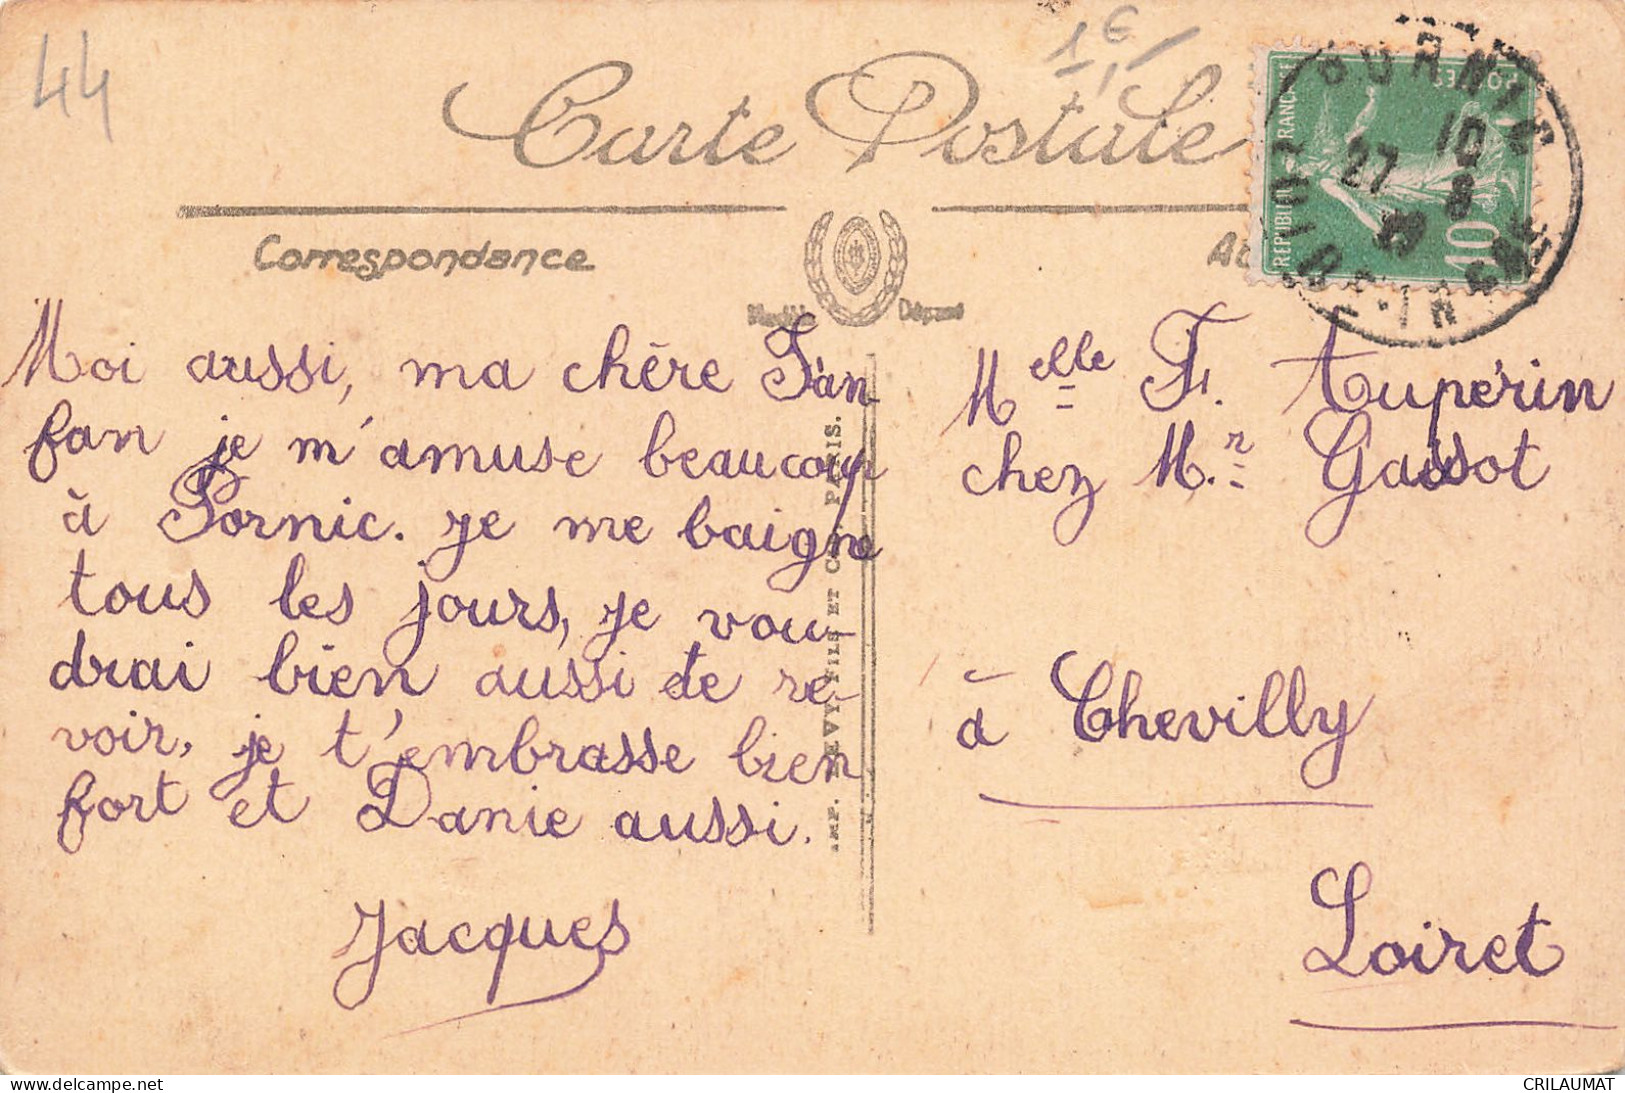 44
1€
Carte Postale
Correspondance
Modèle Déposé
RÉPUBLIQUE FRANÇAISE
POSTES
10
PORNIC
10
27 8
Moi aussi, ma chère Fan-
fan je m'amuse beaucoup
à Pornic. Je me baigne
tous les jours, je vou-
drai bien aussi te re-
voir, je t'embrasse bien
fort et Danie aussi.
Jacques
IMP. LEVY FILS ET Cie PARIS.
Melle F. Aupérin
chez Mr. Gassot
à Chevilly
Loiret
delcampe.net
CRILAUMAT